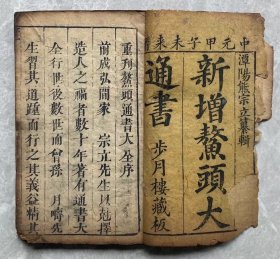 中元甲子未來
潭陽熊宗立纂輯
新增鰲頭大
通書
步月樓藏板
重刊鰲頭通書大全序
前成弘間家 宗立先生具剋擇
造人之福者數十年著有通書大
全行世後數世而會孫 月疇先
生習其道踵而行之其義益精其